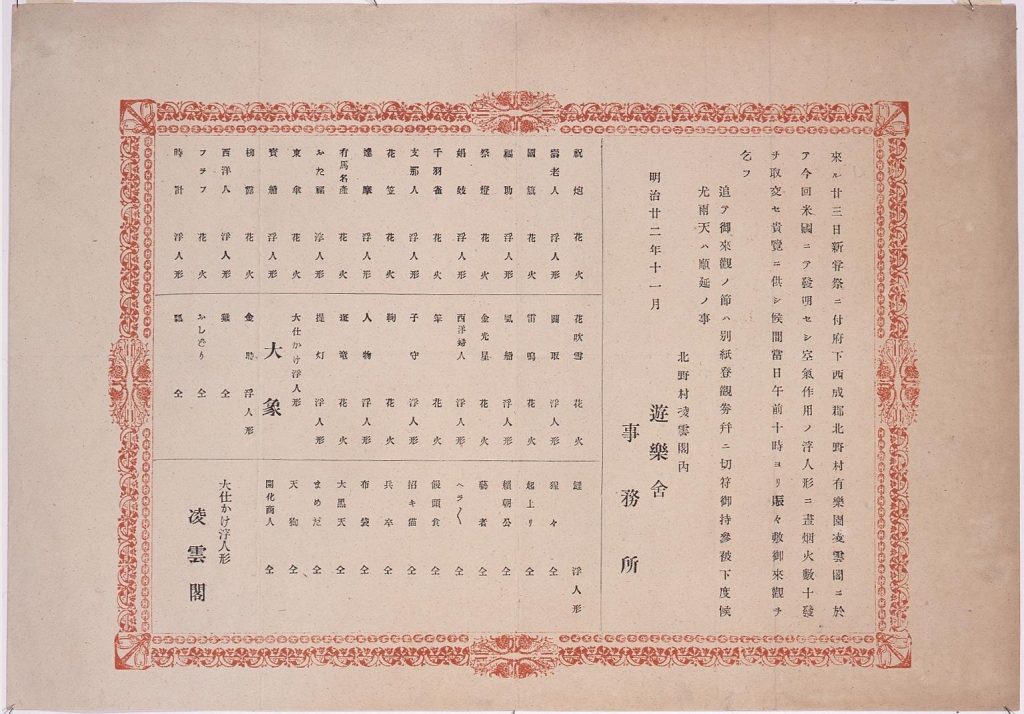 來ル廿三日新嘗祭ニ付府下西成郡北野村有樂園凌雲閣ニ於
テ今回米國ニテ發明セシ空氣作用ノ浮人形ニ晝烟火數十發
ヲ取交セ貴覽ニ供シ候間當日午前十時ヨリ賑々敷御來觀ヲ
乞フ
追テ御來觀ノ節ハ別紙登觀劵幷ニ切符御持參被下度候
尤雨天ハ順延ノ事
北野村凌雲閣內
明治廿二年十一月
遊樂舍
事務所
祝炮 花火
壽老人 浮人形
國旗 花火
福助 浮人形
祭燈 花火
娼妓 浮人形
千羽雀 花火
支那人 浮人形
花笠 花火
達摩 浮人形
有馬名產 花火
おた福 浮人形
東傘 花火
寳船 浮人形
柳 花火
西洋人 浮人形
フラフ 花火
時計 浮人形
花吹雪 花火
關取 浮人形
雷鳴 花火
風船 浮人形
金光星 花火
西洋婦人 浮人形
笨 花火
子守 浮人形
鞠 花火
人物 浮人形
花火
提灯 浮人形
大仕かけ浮人形
大象
金時 浮人形
仝
おしどり 仝
瓢 仝
鯉 浮人形
猩々 仝
起上り 仝
賴朝公 仝
藝者 仝
ヘラ〱 仝
饅頭食 仝
招キ猫 仝
兵卒 仝
布袋 仝
大黑天 仝
まめだ 仝
天狗 仝
開化商人 仝
大仕かけ浮人形
凌雲閣